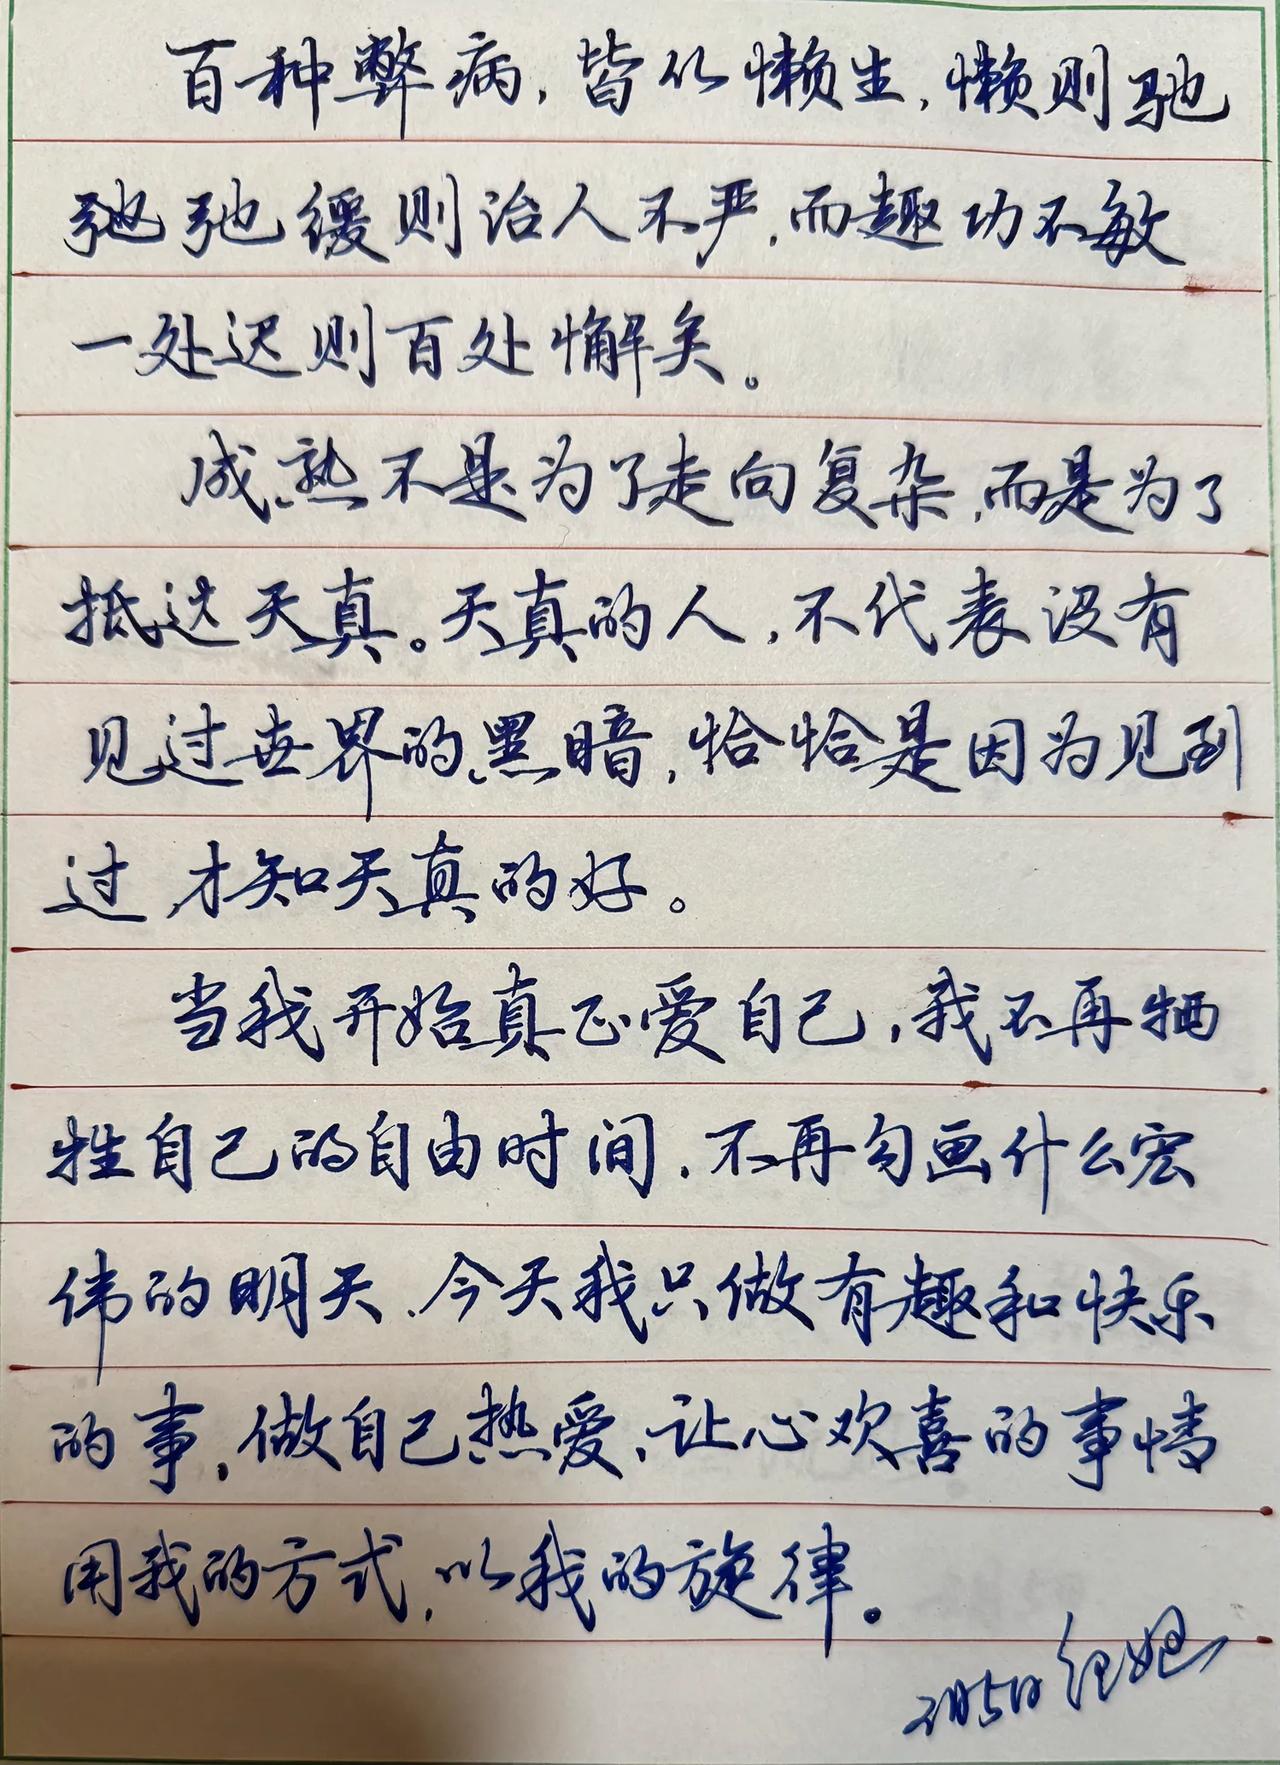 百种弊病，皆从懒生，懒则驰
弛弛缓则治人不严，而趣功不敏
一处迟则百处懈矣。
成熟不是为了走向复杂，而是为了
抵达天真。天真的人，不代表没有
见过世界的黑暗，恰恰是因为见到
过，才知天真的好。
当我开始真正爱自己，我不再牺
牲自己的自由时间，不再勾画什么宏
伟的明天，今天我只做有趣和快乐
的事，做自己热爱，让心欢喜的事情
用我的方式，以我的旋律。